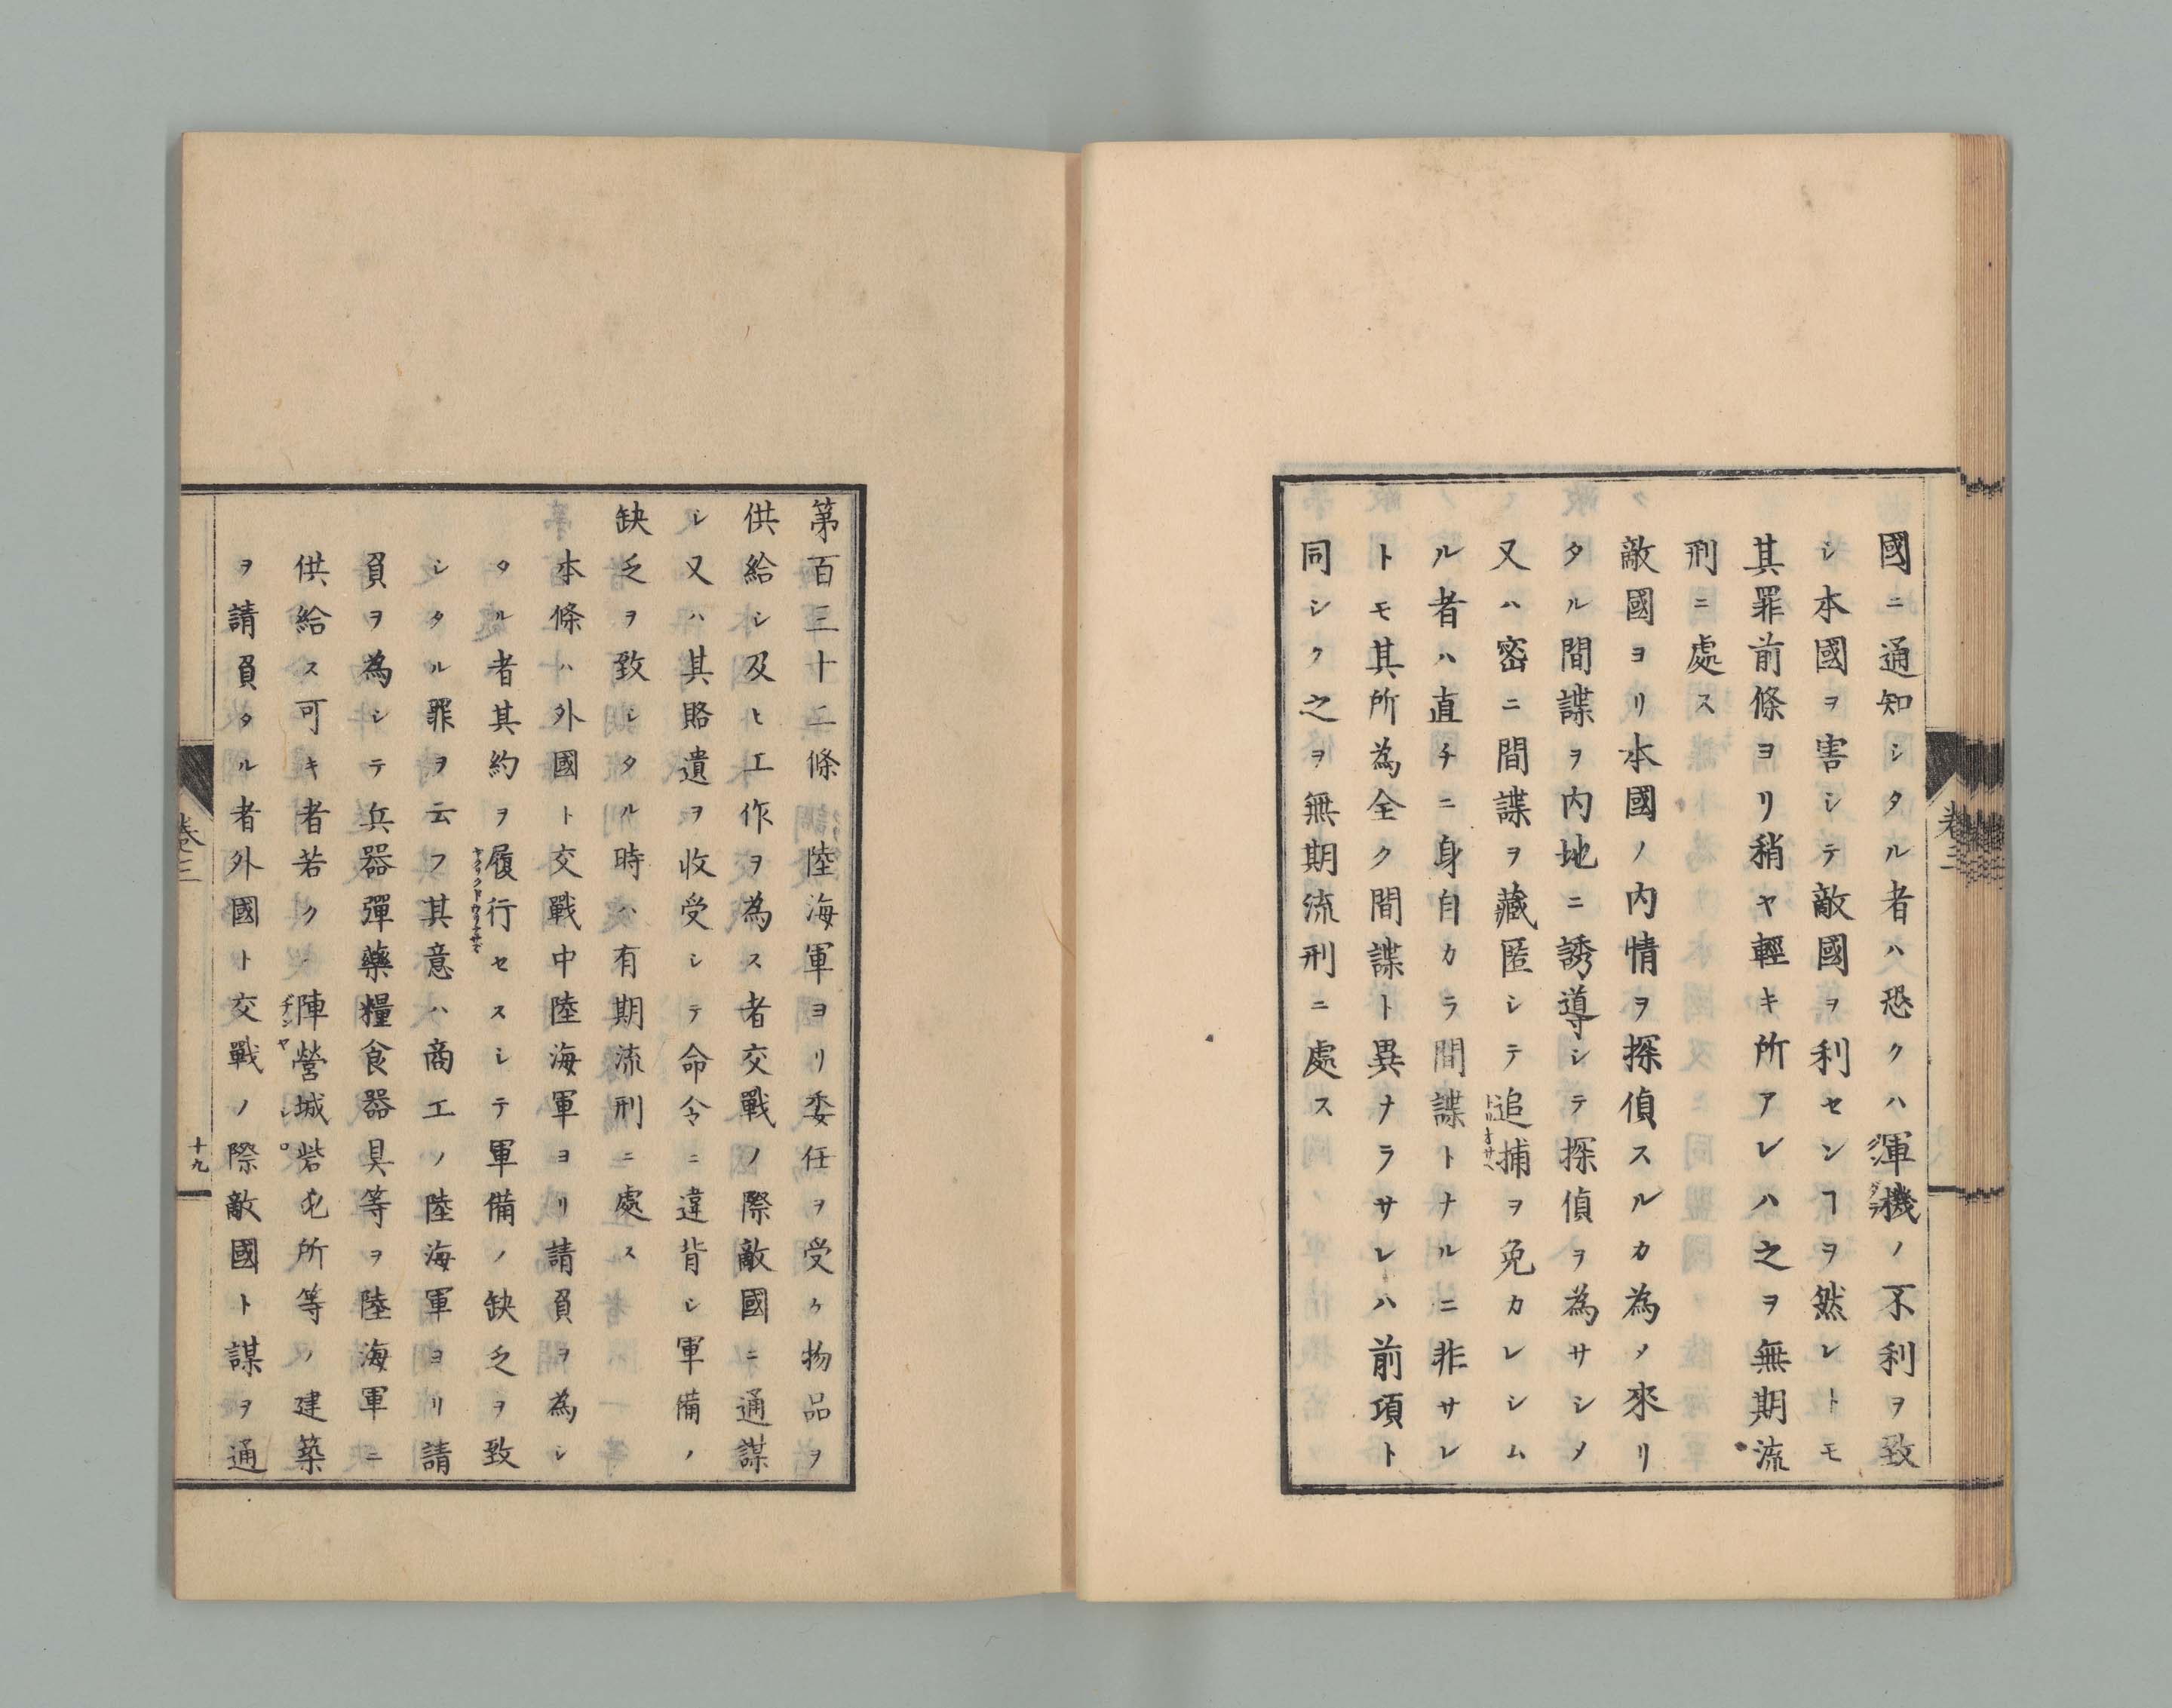 國ニ通知シタル者ハ恐クハ渾機ノ不利ヲ致
シ本國ヲ害シテ敵國ヲ利センヿヲ然レトモ
其罪前條ヨリ稍ヤ輕キ所アレハ之ヲ無期流
刑ニ處ス
敵國ヨリ本國ノ内情ヲ探偵スルカ為メ來リ
タル間諜ヲ内地ニ誘導シテ探偵ヲ為サシメ
又ハ密ニ間諜ヲ藏匿シテ追捕ヲ免カレシム
ル者ハ直チニ身自カラ間諜トナルニ非サレ
トモ其所為全ク間諜ト異ナラサレハ前項ト
同シク之ヲ無期流刑ニ處ス
卷三
第百三十二條 陸海軍ヨリ委任ヲ受ケ物品ヲ
供給シ及ヒ工作ヲ為ス者交戰ノ際敵國ニ通謀
シ又ハ其賂遺ヲ收受シテ命令ニ違背シ軍備ノ
缺乏ヲ致シタル時ハ有期流刑ニ處ス
本條ハ外國ト交戰中陸海軍ヨリ請負ヲ為シ
タル者其約ヲ履行セスシテ軍備ノ缺乏ヲ致
シタル罪ヲ云フ其意ハ商工ノ陸海軍ヨリ請
負ヲ為シテ兵器彈藥糧食器具等ヲ陸海軍ニ
供給ス可キ者若クハ陣營城砦屯所等ノ建築
ヲ請負タル者外國ト交戰ノ際敵國ト謀ヲ通
卷三
十九